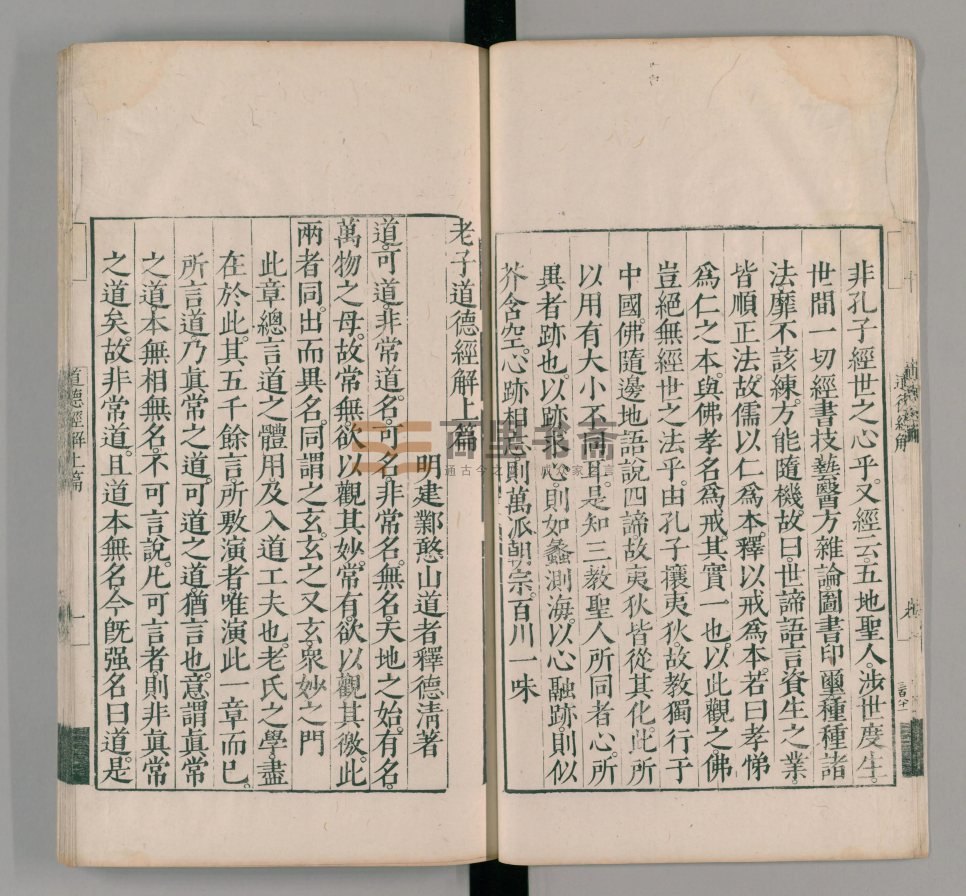 非孔子經世之心乎。又經云。五地聖人。涉世度生。
世間一切經書技藝醫方雜論圖書印璽種種諸
法靡不該練。方能隨機。故曰。世諦語言資生之業
皆順正法。故儒以仁爲本。釋以戒爲本。若曰孝悌
爲仁之本。與佛孝名爲戒。其實一也。以此觀之。佛
豈絕無經世之法乎。由孔子攘夷狄。故教獨行于
中國。佛隨邊地語說四諦。故夷狄皆從其化。此所
以用有大小不同耳。是知三教聖人所同者心。所
異者跡也。以跡求心。則如蠡測海。以心融跡。則似
芥含空。心跡相忘。則萬派朝宗。百川一味
老子道德經解上篇
明建鄴憨山道者釋德清著
道。可道。非常道。名。可名。非常名。無名。天地之始。有名。
萬物之母。故常無。欲以觀其妙。常有。欲以觀其徼。此
兩者同。出而異名。同謂之玄。玄之又玄。衆妙之門
此章總言道之體用。及入道工夫也。老氏之學。盡
在於此。其五千餘言。所敷演者。唯演此一章而已。
所言道。乃眞常之道。可道之道。猶言也。意謂眞常
之道。本無相無名。不可言說。凡可言者。則非眞常
之道矣。故非常道。且道本無名。今旣强名曰道。是
道德經解上篇
一
百里书斋